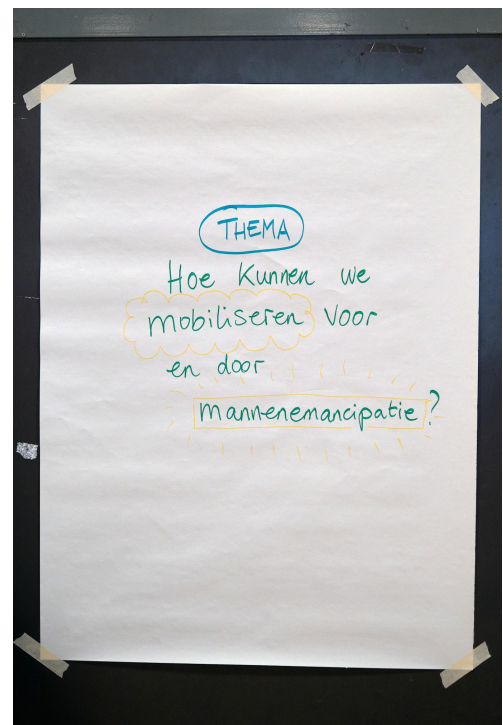 THEMA
Hoe kunnen we
mobiliseren voor
en door
mannenemancipatie?